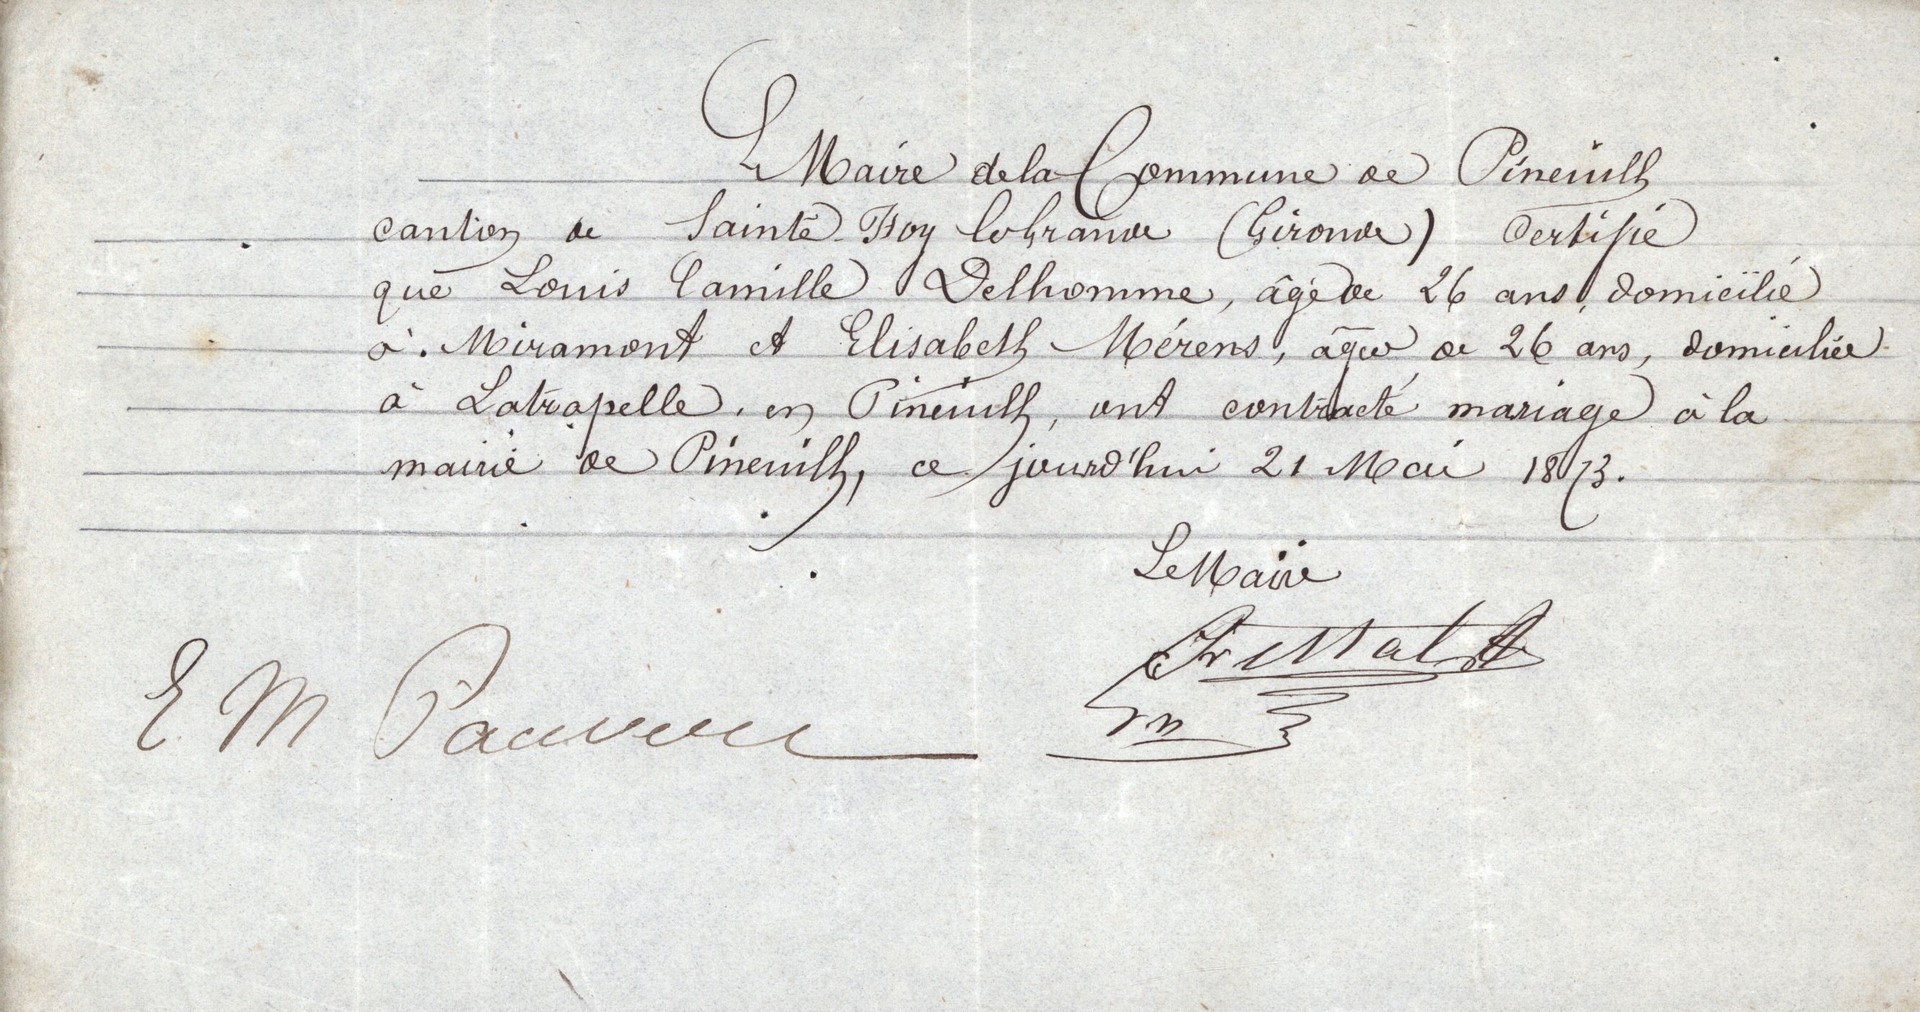 Le Maire de la Commune de Pineuilh
canton de Sainte-Foy la Grande (Gironde) certifie
que Louis Camille Delhomme, âgé de 26 ans, domicilié
à Miramont et Elisabeth Mérens, âgée de 26 ans, domiciliée
à Latrapelle, en Pineuilh, ont contracté mariage à la
mairie de Pineuilh, ce jourd'hui 21 Mai 1873.
Le Maire
E M